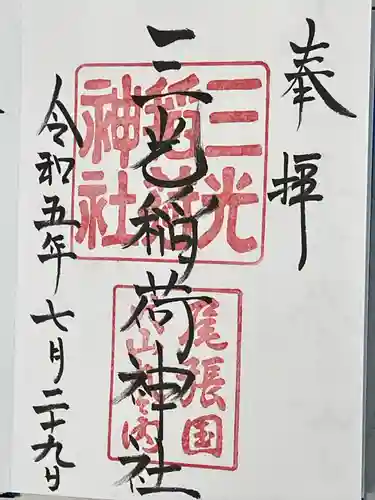 奉拝
三光稲荷神社
三光稲荷神社
尾張国
犬山城之内
令和五年七月二十九日